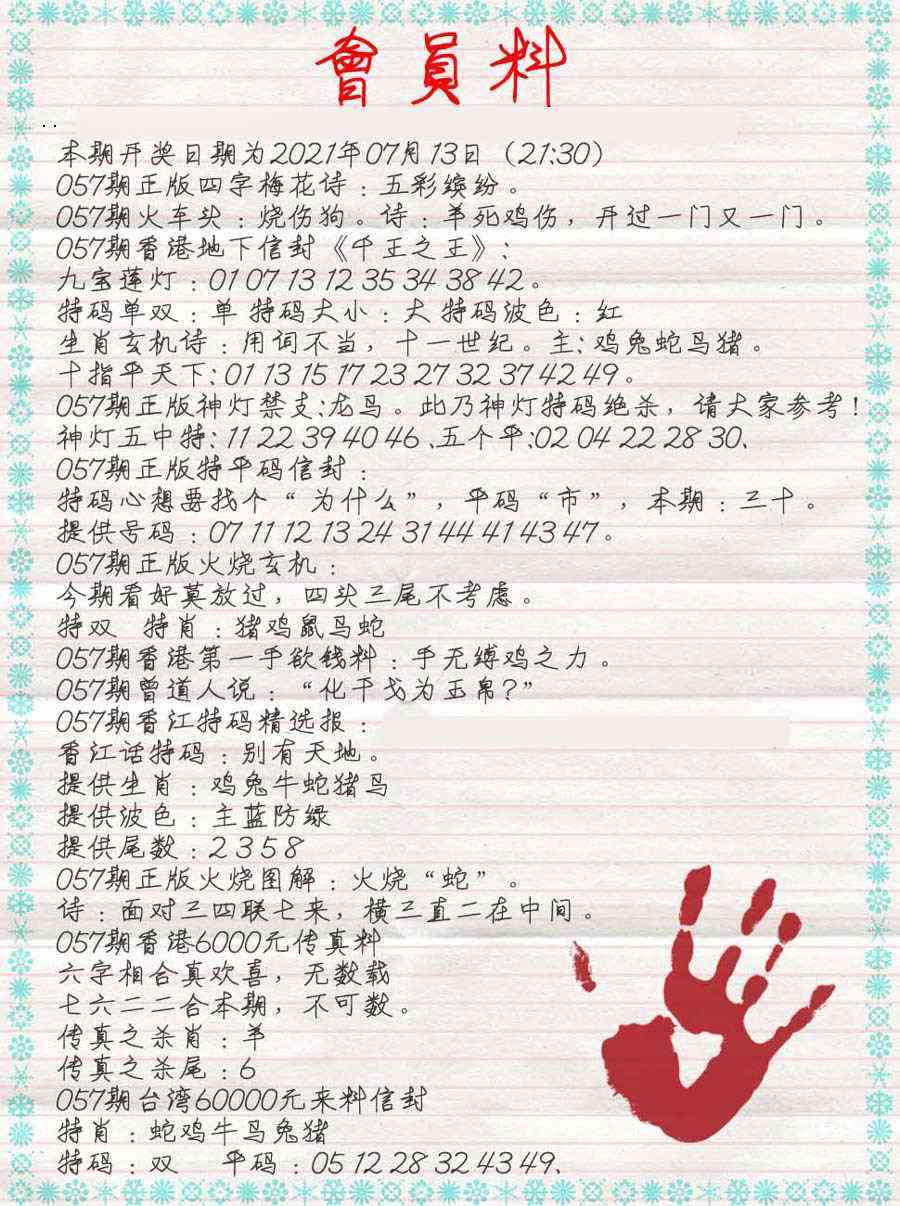 會員料
..
本期开奖日期为2021年07月13日（21:30）
057期正版四字梅花诗：五彩缤纷。
057期火车头：烧伤狗。诗：羊死鸡伤，开过一门又一门。
057期香港地下信封《千王之王》：
九宝莲灯：01 07 13 12 35 34 38 42。
特码单双：单 特码大小：大 特码波色：红
生肖玄机诗：用词不当，十一世纪。主:鸡兔蛇马猪。
十指平天下:01 13 15 17 23 27 32 37 42 49。
057期正版神灯禁支:龙马。此乃神灯特码绝杀，请大家参考！
神灯五中特: 11 22 39 40 46 、五个平:02 04 22 28 30、
057期正版特平码信封：
特码心想要找个“为什么”，平码“市”，本期：三十。
提供号码：07 11 12 13 24 31 44 41 43 47。
057期正版火烧玄机：
今期看好莫放过，四头三尾不考虑。
特双 特肖：猪鸡鼠马蛇
057期香港第一手欲钱料：手无缚鸡之力。
057期曾道人说：“化干戈为玉帛?”
057期香江特码精选报：
香江话特码：别有天地。
提供生肖：鸡兔牛蛇猪马
提供波色：主蓝防绿
提供尾数：2 3 5 8
057期正版火烧图解：火烧“蛇”。
诗：面对三四联七来，横三直二在中间。
057期香港6000元传真料
六字相合真欢喜，无数载
七六二二合本期，不可数。
传真之杀肖：羊
传真之杀尾：6
057期台湾60000元来料信封
特肖：蛇鸡牛马兔猪
特码：双 平码：05 12 28 32 43 49、